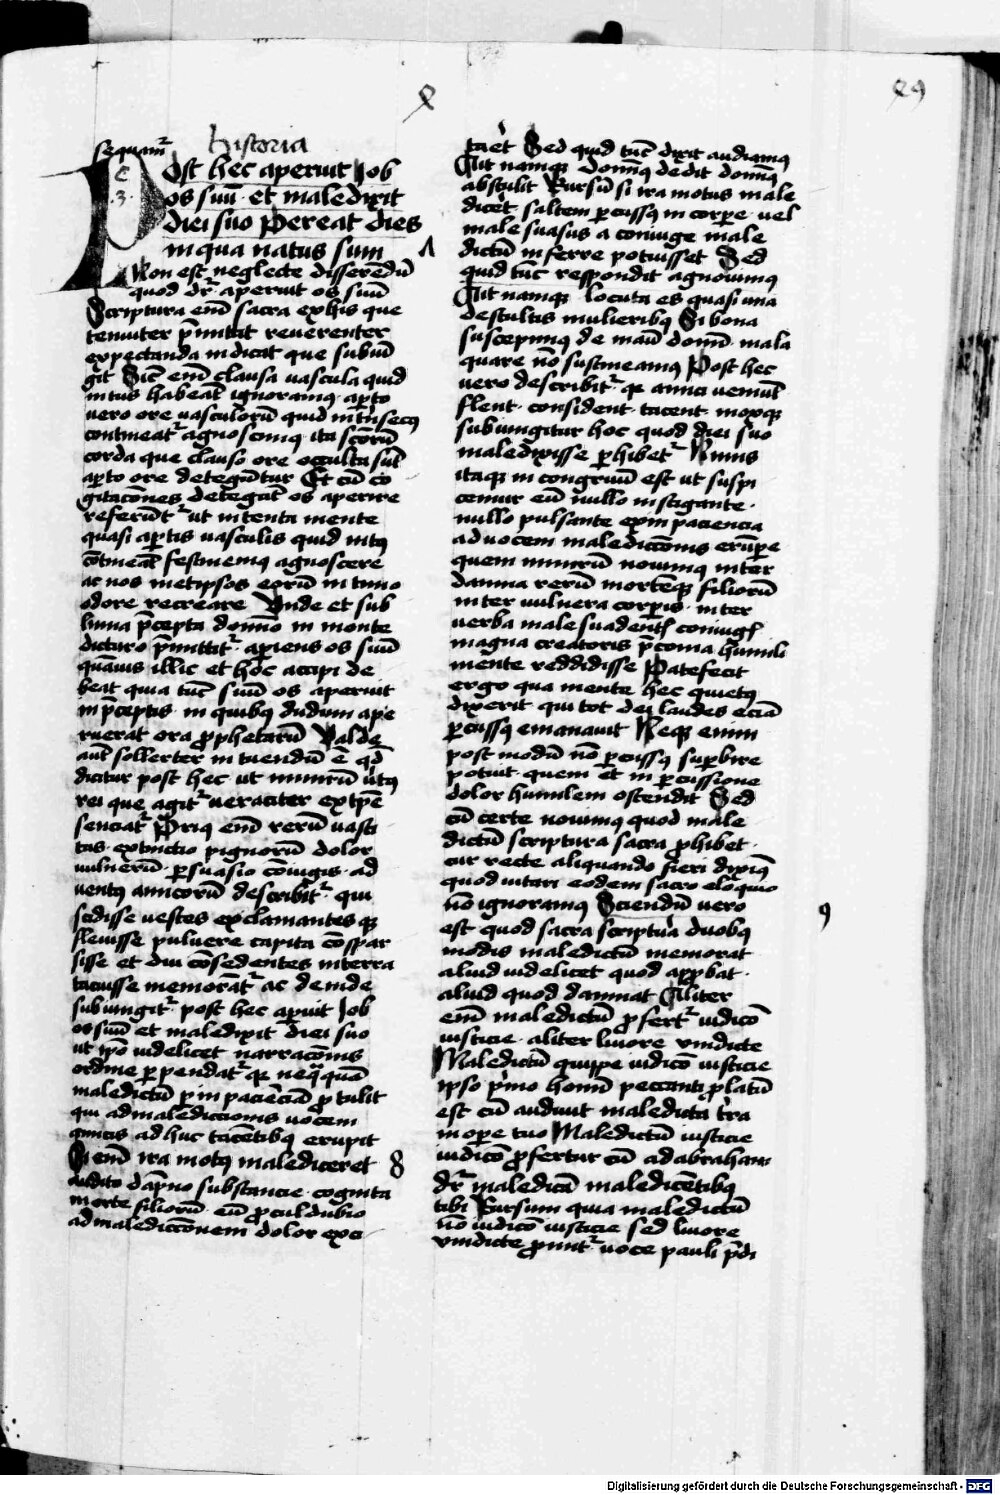 49
sequitur
historia
c
.3.
Post hec aperuit Job
os suū · et maledixit
diei suo Pereat dies
in qua natus sum
Non est neglecte disserēdū
quod dr̄ · aperuit os suū
Scriptura em̄ sacra ex his que
tenuiter p̄mittit reuerenter
expectanda indicat que subiū
git Sicut em̄ clausa vascula quid
intus habeāt ignoramus ap̄to
vero ore vasculorū quid intrīsecꝰ
contineatr̄ agnoscimꝰ · ita sc̄orū
corda que clauso ore occulta sūt
ap̄to ore detegūtur Et cū co
gitacōnes detegūt os aperire
referūtr̄ ut intenta mente
quasi ap̄tis vasculis quid intꝰ
cōtineāt festinemꝰ agnoscere
ac nos metipsos eorū intimo
odore recreare Unde et sub
lima p̄cepta domīo in monte
dicturo p̄mittitr̄ · apiens os suū
quāuis illic et hoc accipi de
beat quia tūc suū os aperuit
in p̄ceptis · in quibꝰ dudum ape
ruerat ora prophetarū Valde
aūt sollerter intuendū ē qd̄
dicitur post hec ut nimirū virtꝰ
rei que agitr̄ veraciter ex tp̄e
senciatr̄ Priꝰ em̄ rerū vasti
tas · extinctio pignorū dolor
vulnerū · p̄suasio cōiugis · ad
uentꝰ amicorū describitr̄ · qui
scidisse vestes exclamantesqꝫ
fleuisse puluere capita cōspar
sisse et diu cōsedentes in terra
tacuisse memorātr̄ ac deinde
subiungitr̄ · post hec apuit Job
os suū et maledixit diei suo
ut ipo videlicet narracōnis
ordine perpendatr̄ qꝫ neq̄quā
maledictū p̄ inpacienciā protulit
qui ad malediccionis vocem
amicis adhuc tacētibꝰ erupit
Si em̄ ira motꝰ malediceret 8
audito dāpno substancie · cognita
morte filiorū · eū proculdubio
ad malediccōnem dolor exci
taret Sed quid tūc dixit audiamꝰ
Ait namqꝫ domīꝰ dedit domīꝰ
abstulit Rursū si ira motus male
dicēt saltem percussꝰ in corpe · vel
male suasus a coniuge male
dictū inferre potuisset Sed
quid tūc respondit agnouimꝰ
Ait namqꝫ locuta es quasi una
de stultis mulieribꝰ Si bona
suscepimꝰ de manū domīi mala
quare nō sustineamꝰ Post hec
vero describitr̄ qꝫ amici veniūt
flent · consident · tacent · moxqꝫ
subiungitur hoc quod diei suo
maledixisse perhibetr̄ Nimis
itaqꝫ incongruū est ut suspi
cemur eū nullo instigante ·
nullo pulsante ex inpaciencia
ad vocem malediccōnis erūpe
quem nimirū nouimꝰ inter
damna rerū mortēqꝫ filiorū
inter vulnera corporis · inter
verba male suadentis coniugis
magna creatoris p̄conia humili
mente reddidisse Patefecit
ergo qua mente hec quietꝰ
dixerit qui tot dei laudes eciā
percussꝰ emanauit Neqꝫ enim
post modū nō percussꝰ superbire
potuit · quem et in percussione
dolor humilem ostendit Sed
cū certe nouimꝰ quod male
dictū scriptura sacra prohibet ·
cur recte aliquando fieri dixiꝰ
quod vitari eodem sacro eloquio
nō ignoramꝰ Sciendū vero
est quod sacra scriptura duobꝰ
9
modis maledictū memorat
aliud videlicet quod approbat ·
aliud quod damnat Aliter
em̄ maledictū profertr̄ iudicō
iusticie · aliter liuore vindicte
Maledictū quippe iudicō iusticie
ipso primo homī peccanti prolatū
est cū audiuit maledicta tr̄ra
in opere tuo Maledictū iusticie
iudicō profertur cū ad abraham
dr̄ maledicā maledicētibꝰ
tibi Rursum quia maledictū
nō iudicō iusticie sed liuore
vindicte promitr̄ · voce pauli p̄di